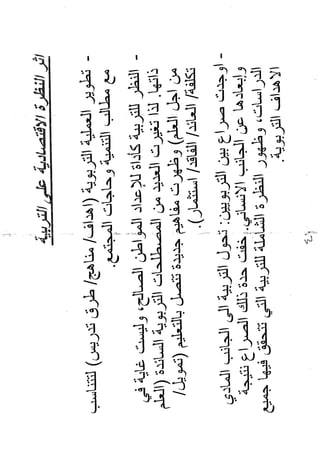 اثر النظرة الاقتصادية على التربية
- تطوير العملية التربوية (اهداف/ مناهج/ طرق تدريس) لتتناسب
مع مطالب التنمية وحاجات المجتمع.
- النظر للتربية كأداة للإعداد المواطن الصالح، وليست غاية في
ذاتها. لذا تغيرت العديد من المصطلحات التربوية السائدة (العلم
من اجل العلم) وظهرت مفاهيم جديدة تتصل بالتعليم (تمويل/
تكلفة/ العائد/ الفاقد/ استثمار).
- اوجدت صراع بين التربويين: تحول التربية الى الجانب المادي
وابعادها عن الجانب الانساني. خفت حدة ذلك الصراع نتيجة
الدراسات، وظهور النظرة الشاملة للتربية التي تتحقق فيها جميع
الاهداف التربوية.